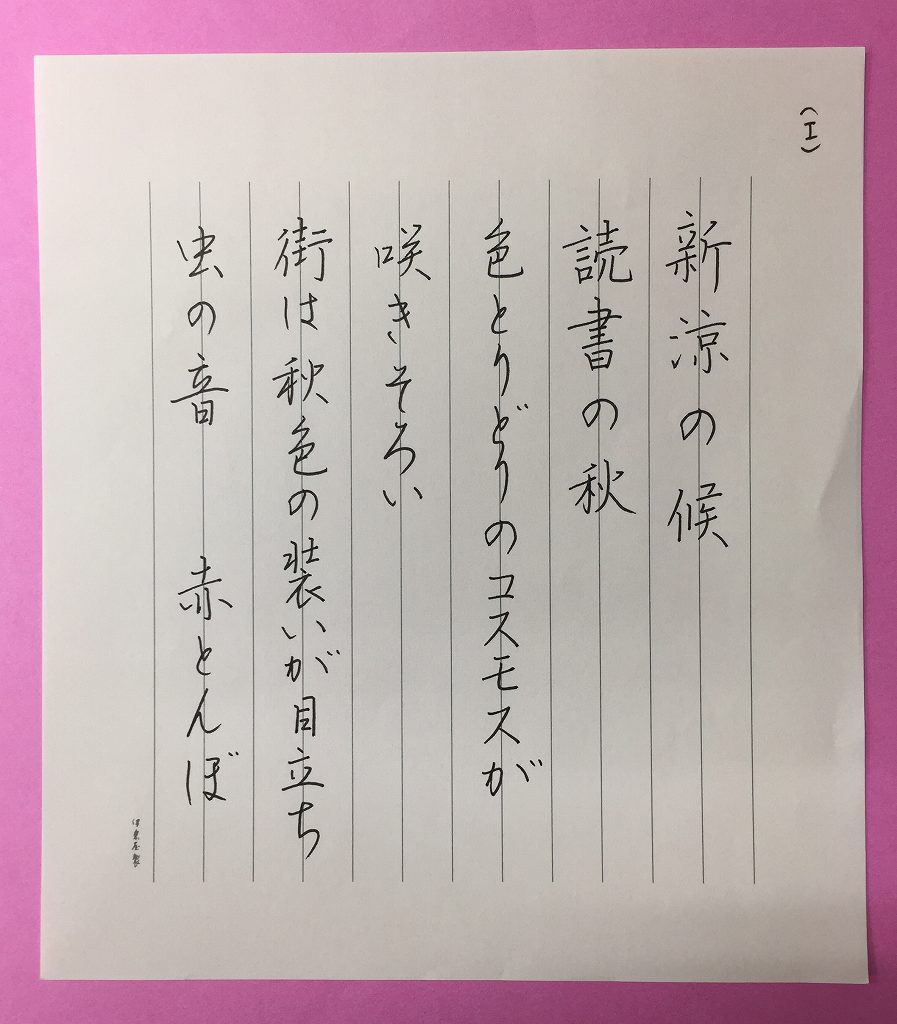 (エ)
新涼の候
読書の秋
色とりどりのコスモスが
咲きそろい
街は秋色の装いが目立ち
虫の音　赤とんぼ
伊東屋製